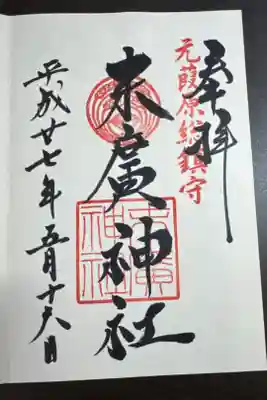 奉拝
元葭原総鎮守
末廣神社
末廣神社
平成廿七年五月十六日